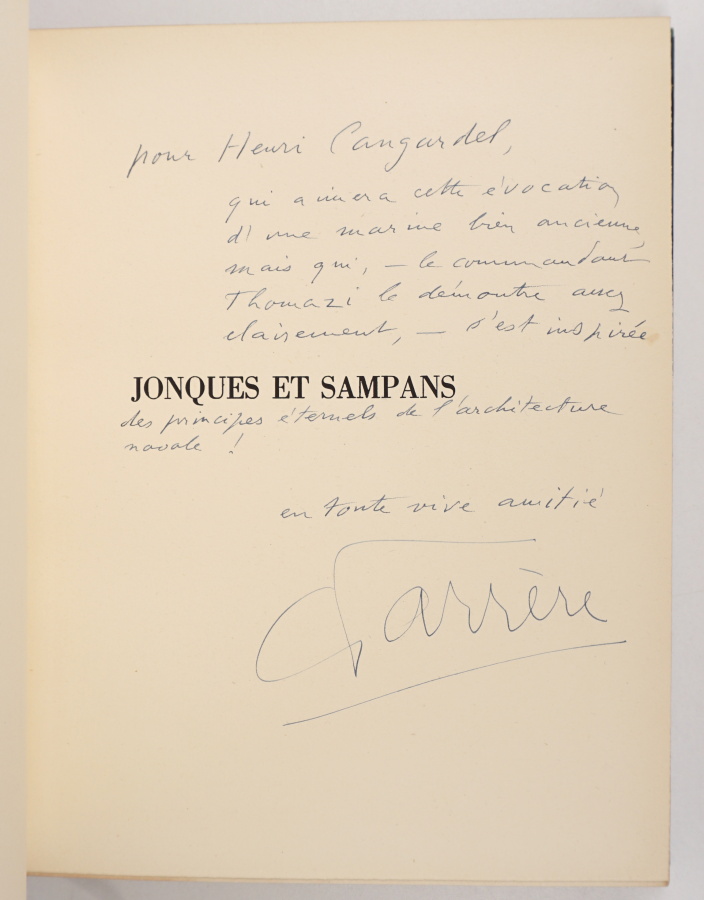 pour Henri Cangardel,
qui aimera cette évocation
d'une marine bien ancienne,
mais qui, – le commandant
Thomazi le démontre assez
clairement, – s'est inspirée
JONQUES ET SAMPANS
des principes éternels de l'architecture
navale !
en toute vive amitié
C Farrère